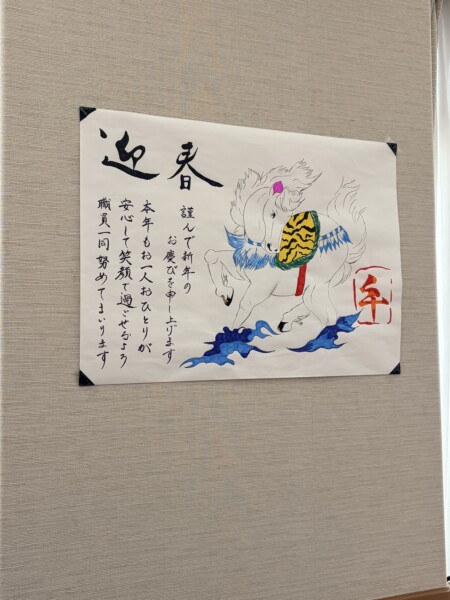 迎春
謹んで新年の
お慶びを申し上げます
本年もお一人おひとりが
安心して笑顔で過ごせるよう
職員一同努めてまいります
午